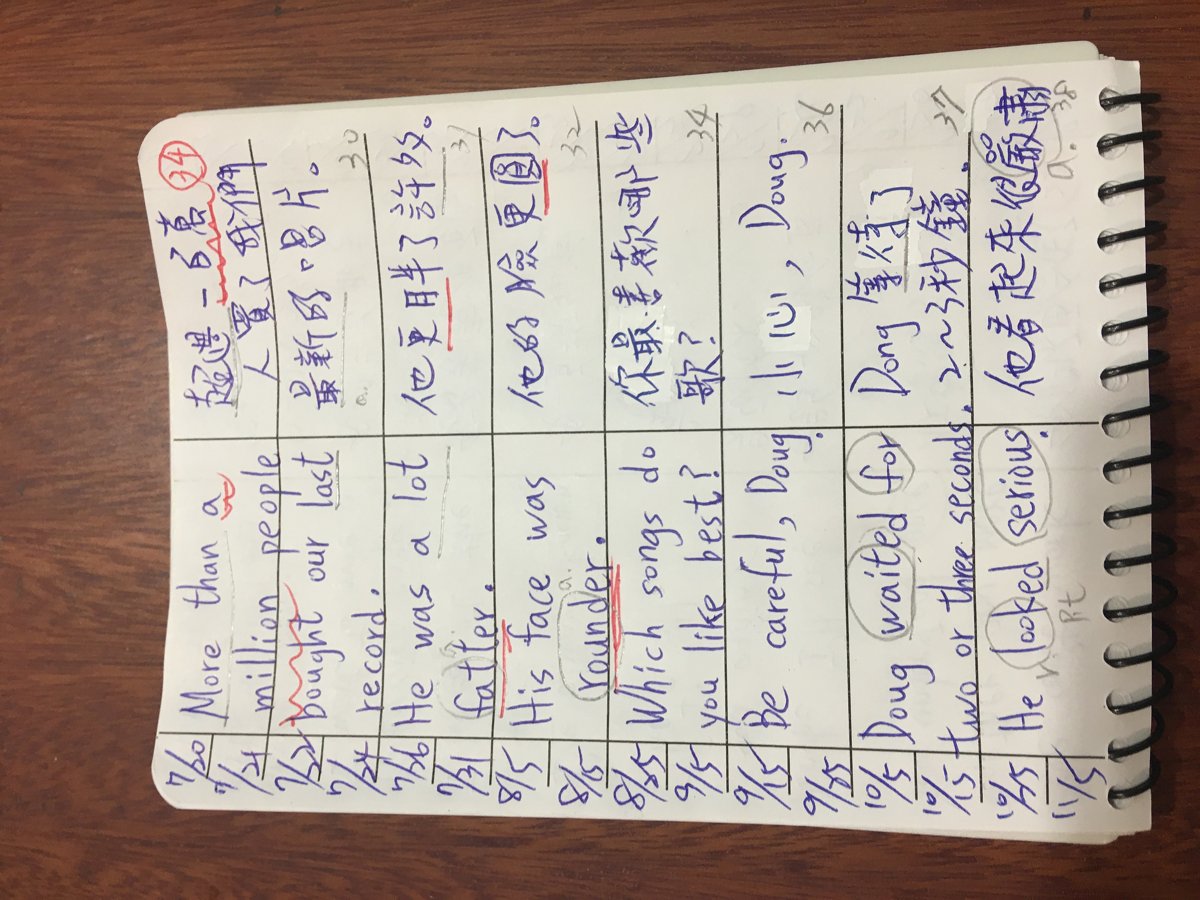 7/20 More than a 超過一百萬 34
7/21 million people 人買了我們
7/22 bought our last 最新的唱片。
7/24 record. 30
7/26 He was a lot 他更胖了許多。
7/31 fatter. 31
8/5 His face was 他的臉更圓了。
8/15 rounder. a. 32
8/25 Which songs do 你最喜歡哪些
9/5 you like best? 歌? 34
9/15 Be careful, Doug. 小心, Doug.
9/25 36
10/5 Doug waited for Dong 等待了
10/15 two or three seconds. 2~3秒鐘. 37
10/25 He looked serious. 他看起來很嚴肅
11/5 v. Pt a. 38